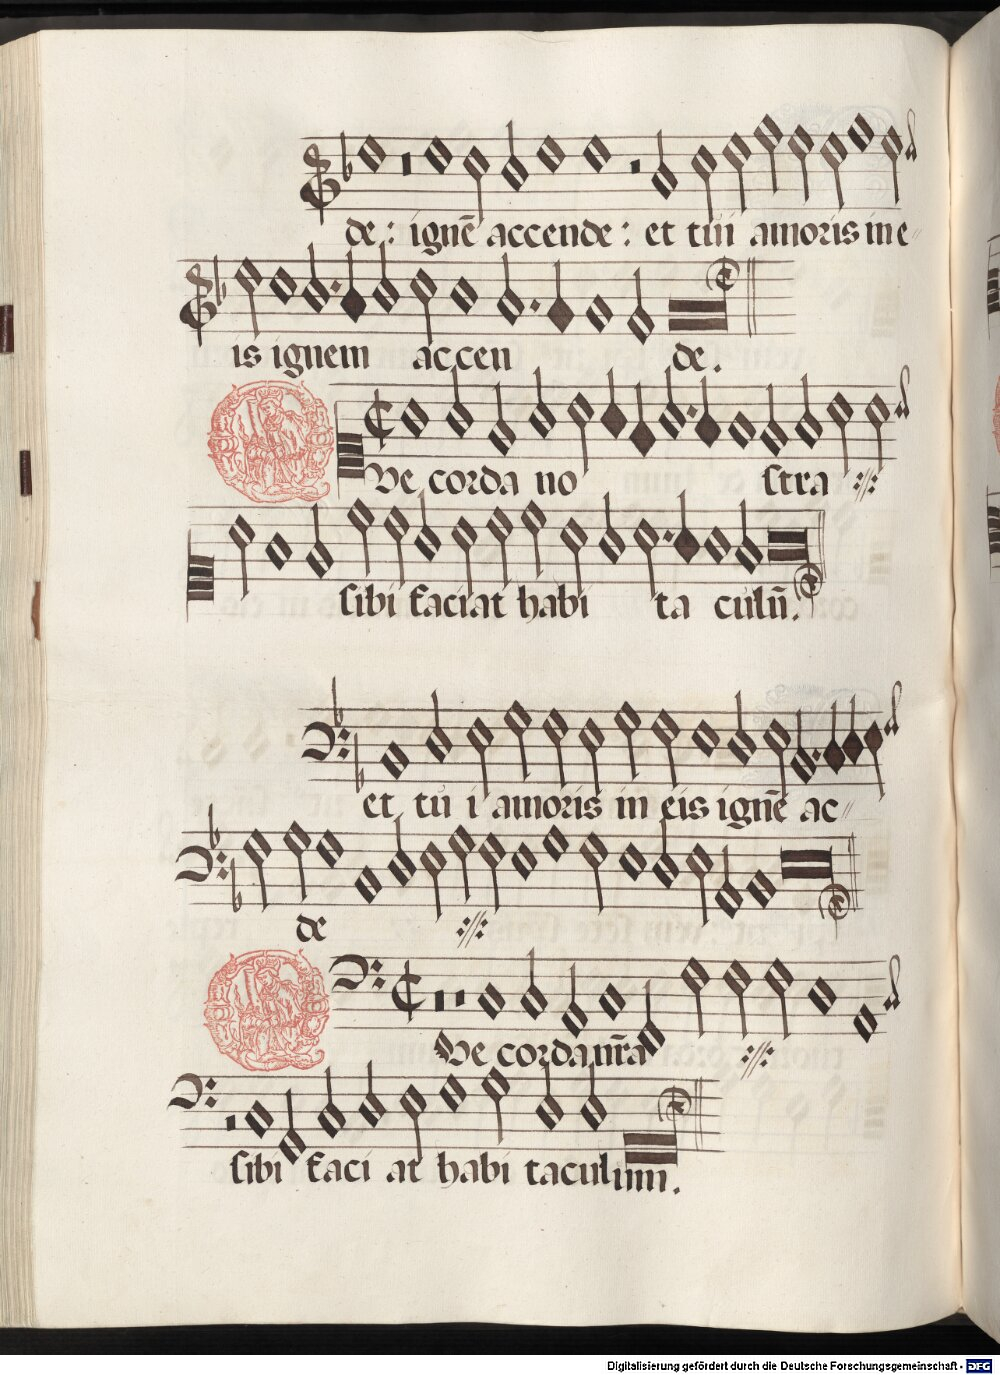 de : ignē accende : et tui amoris in e〃
is ignem accen de.
Que corda no stra
sibi faciat habi ta culū.
et tu i amoris in eis ignē ac〃
de
Que corda nr̄a
sibi faci at habi taculum.
Digitalisierung gefördert durch die Deutsche Forschungsgemeinschaft - DFG